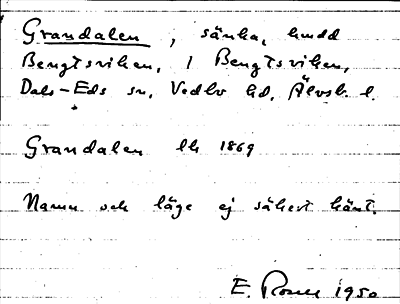 Grandalen, sänka, hmdd
Bengtsviken, i Bengtsviken,
Dals-Eds sn, Vedbo hd, Älvsb. l.
Grandalen lk 1869
Namn och läge ej säkert känt.
E. 1950